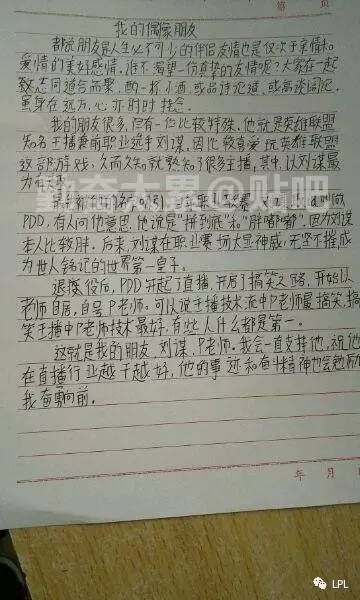 第 页
我的偶像朋友
都说朋友是人生必不可少的伴侣友情也是仅次于亲情和
爱情的美好感情。谁不渴望一份真挚的友情呢？大家在一起
致志同道合而聚，或一杯小酒，或品诗论道，或高谈阔论，
虽身在远方，心亦时时牵念。
我的朋友很多，但有一位比较特殊。他就是英雄联盟
知名主播兼前职业选手刘谋，因比较喜爱玩英雄联盟
这部游戏，久而久知就熟知了很多主播，其中，以刘谋最
为
职业联赛
PDD，有人问他意思，他说是“拼到底”和“胖嘟嘟”，因为刘谋
本人比较胖。后来，刘谋在职业赛场大显神威，无坚不摧，成
为世人铭记的世界第一皇子。
退役后，PDD开起了直播，开启了搞笑之路，开始以
老师自居，自号P老师。可以说主播技术流中P老师最搞笑，搞
笑主播中P老师技术最好，有些人什么都是第一。
这就是我的朋友刘谋，P老师。我会一直支持他，祝他
在直播行业越干越好，他的事迹和奋斗精神也会勉励
我奋勇向前。
贴吧
第 页
LPL